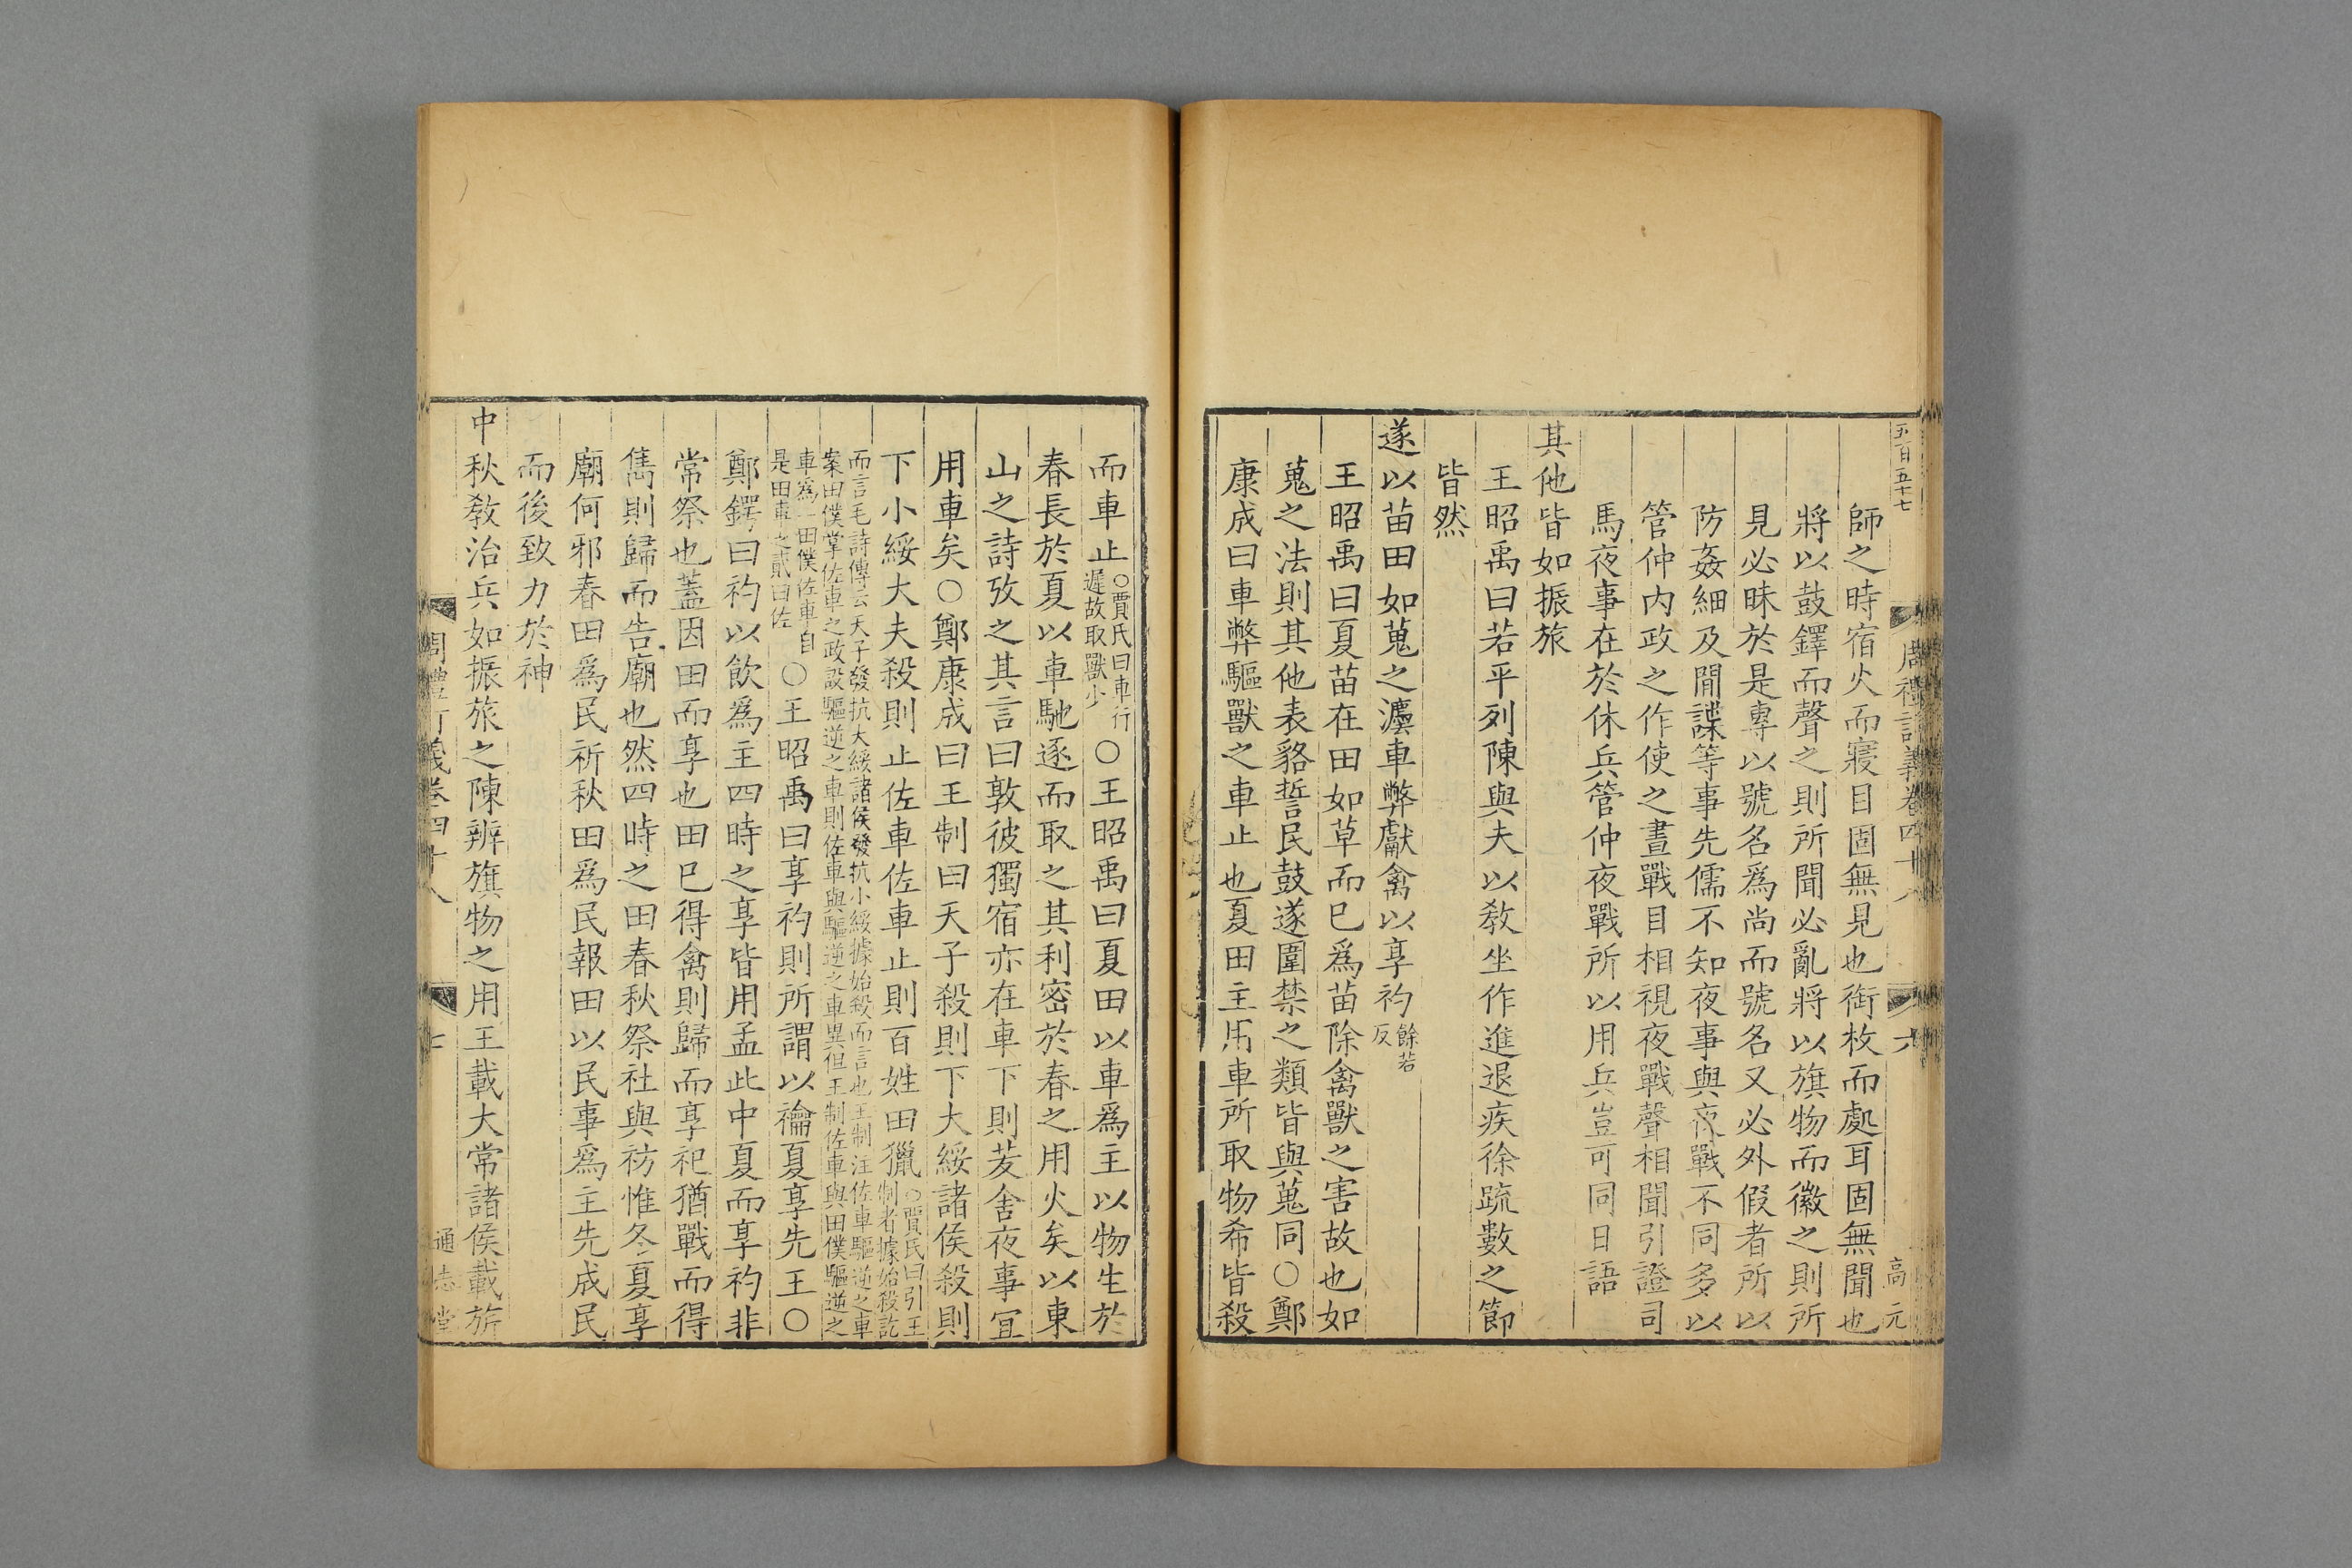 五百五十七
周禮訂義卷四十八
六
高元
師之時宿火而寢目固無見也銜枚而處耳固無聞也
將以鼓鐸而聲之則所聞必亂將以旗物而徽之則所
見必昧於是專以號名爲尚而號名又必外假者所以
防姦細及間諜等事先儒不知夜事與夜戰不同多以
管仲内政之作使之晝戰目相視夜戰聲相聞引證司
馬夜事在於休兵管仲夜戰所以用兵豈可同日語
其他皆如振旅
王昭禹曰若平列陳與夫以敎坐作進退疾徐疏數之節
皆然
遂以苗田如蒐之灋車弊獻禽以享礿餘若反
王昭禹曰夏苗在田如草而巳爲苗除禽獸之害故也如
蒐之法則其他表貉誓民鼓遂圍禁之類皆與蒐同○鄭
康成曰車弊驅獸之車止也夏田主用車所取物希皆殺
而車止○賈氏曰車行遲故取獸少○王昭禹曰夏田以車爲主以物生於
春長於夏以車馳逐而取之其利密於春之用火矣以東
山之詩攷之其言曰敦彼獨宿亦在車下則茇舍夜事宜
用車矣○鄭康成曰王制曰天子殺則下大綏諸侯殺則
下小綏大夫殺則止佐車佐車止則百姓田獵○賈氏曰引王制者據始殺訖
而言毛詩傳云天子發抗大綏諸侯發抗小綏據始殺而言也王制注佐車驅逆之車
案田僕掌佐車之政設驅逆之車則佐車與驅逆之車異但王制佐車與田僕驅逆之
車爲一田僕佐車自是田車之貳曰佐○王昭禹曰享礿則所謂以禴夏享先王○
鄭鍔曰礿以飲爲主四時之享皆用孟此中夏而享礿非
常祭也蓋因田而享也田巳得禽則歸而享祀猶戰而得
雋則歸而告廟也然四時之田春秋祭社與祊惟冬夏享
廟何邪春田爲民祈秋田爲民報田以民事爲主先成民
而後致力於神
中秋敎治兵如振旅之陳辨旗物之用王載大常諸侯載旂
周禮訂義卷四十八
七
通志堂